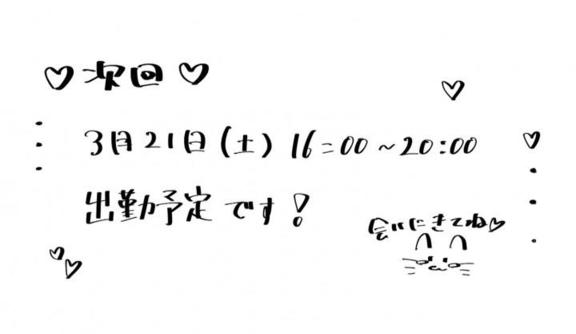 ♡次回♡
3月21日(土) 16:00~20:00
出勤予定です!
会いにきてね♡